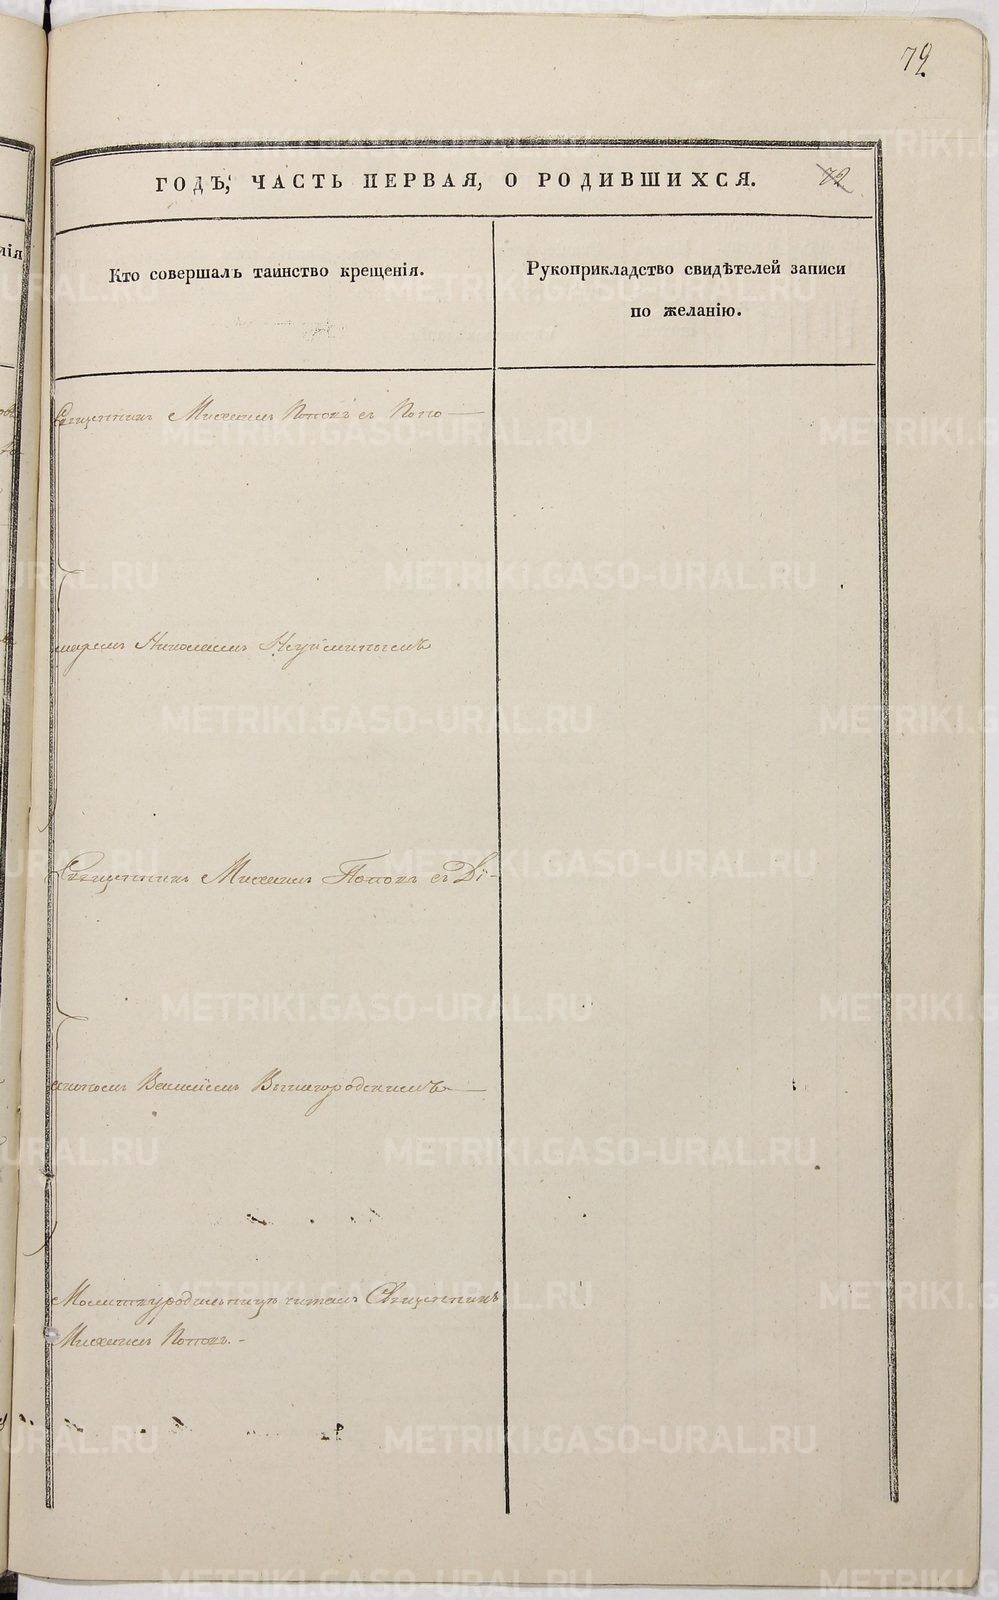 79
ГОДЪ, ЧАСТЬ ПЕРВАЯ, О РОДИВШИХСЯ.
72
Кто совершалъ таинство крещенія.
Рукоприкладство свидѣтелей записи
по желанію.
Священникъ Михаилъ Поповъ съ Поно-
маремъ Николаемъ Неуйминымъ
Священникъ Михаилъ Поповъ съ Дi-
акономъ Василіемъ Вышегородскимъ
Молитву родильницѣ читалъ Священникъ
Михаилъ Поповъ.
METRIKI.GASO-URAL.RU